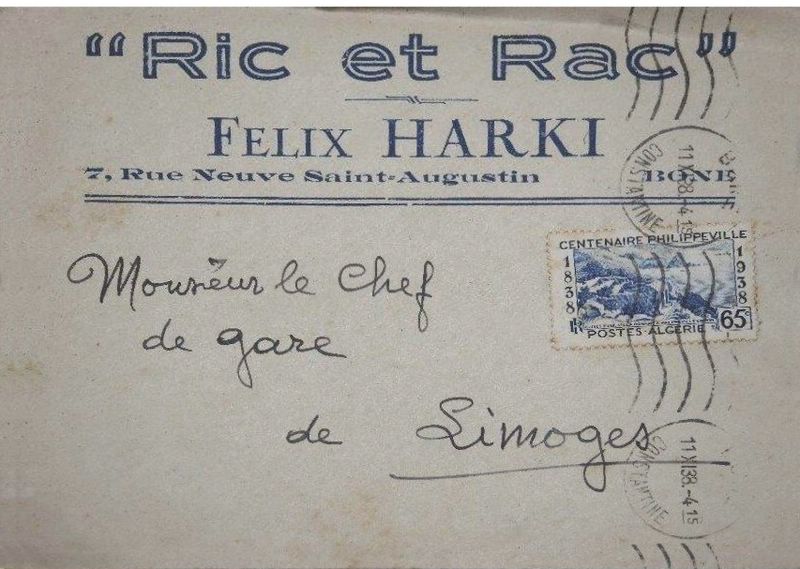 "Ric et Rac"
FELIX HARKI
7, Rue Neuve Saint-Augustin BONE
CONSTANTINE
11 XI38.-4 15
CENTENAIRE PHILIPPEVILLE
1838 1938
65c
POSTES-ALGERIE
Monsieur le Chef
de gare
de Limoges
CONSTANTINE
11 XI38.-4 15